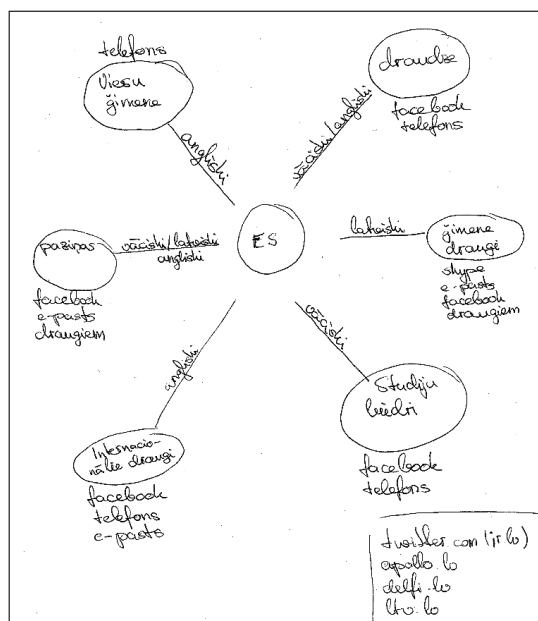 telefons
Viesu
ģimene
angliski
draudze
facebook
telefons
vāciski/angliski
ES
paziņas
vāciski/latviski
angliski
facebook
e-pasts
draugiem
latviski
ģimene
draugi
skype
e-pasts
facebook
draugiem
angliski
Internacio-
nālie draugi
facebook
telefons
e-pasts
vāciski
Studiju
biedri
facebook
telefons
twitter.com (ir.lv)
apollo.lv
delfi.lv
ltv.lv